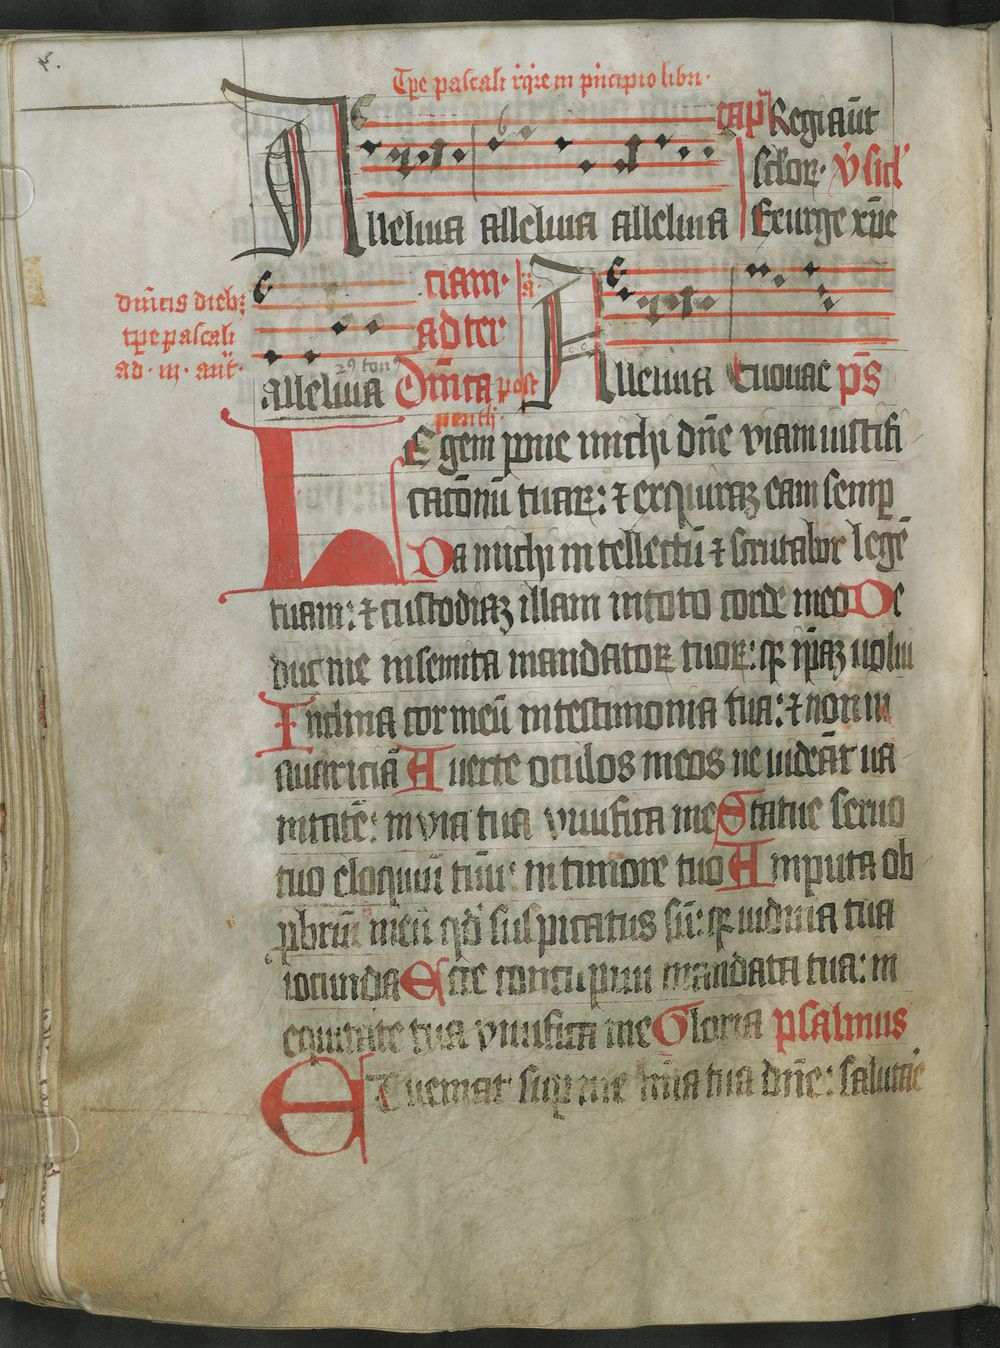 Tp̄e pascali r̄q̄re in p̄ncipio libri·
Alleluia alleluia alleluia
cap̄ Regi aūt
sc̄lor· v̄ sicl'
Exurge xp̄e
dn̄icis dieb;
tp̄e pascali
ad · iii · an̄t·
alleluia
ciam·
ad ter
Dn̄ica post
penth·
ā·
Alleluia Euouae p̄s
LEgem pone michi dn̄e viam iustifi
catōnū tuaꝝ: ⁊ exquiraꝫ eam semꝑ
Da michi intellectū ⁊ scrutabor legē
tuam: ⁊ custodiaꝫ illam in toto corde meo De
duc me in semita mandatoꝝ tuoꝝ: qꝫ ip̄aꝫ uolui
Inclina cor meū in testimonia tua: ⁊ non in
auariciā Auerte oculos meos ne uideāt ua
nitatē: in via tua viuifica me Statue seruo
tuo eloquiū tuū: in timore tuo Amputa ob
ꝓbriū meū qd̄ suspicatus sū: qꝫ iudicia tua
iocunda Ecce concupiui mandata tua: in
equitate tua viuifica me Gloria psalmus
ET ueniat suꝑ me mīa tua dn̄e: salutaē